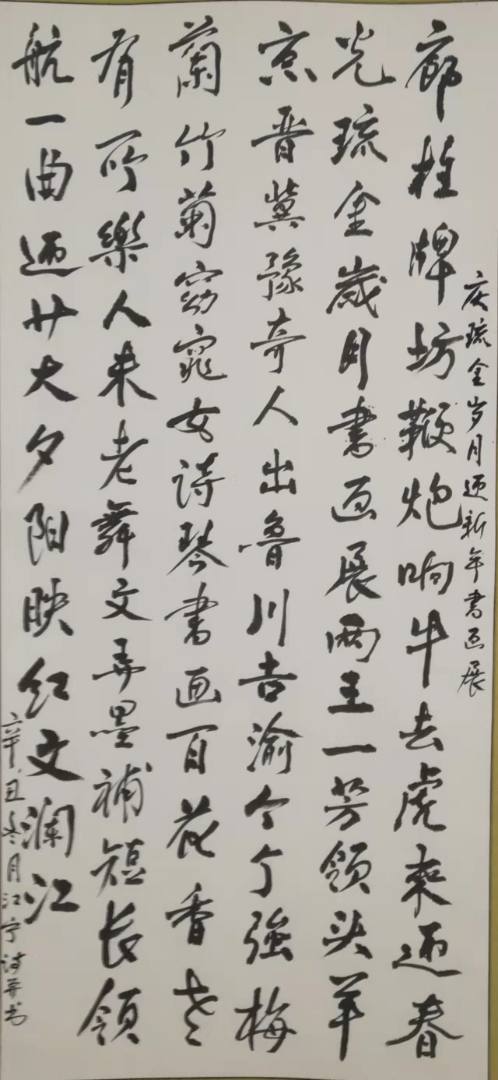 庆琉金岁月迎新年书画展
廊柱牌坊鞭炮响牛去虎來迎春
光琉金歲月书画展两王一芳领头羊
京晋冀豫奇人出鲁川吉渝个个強梅
蘭竹菊窈窕女诗琴书画百花香老
有所樂人未老舞文弄墨補短长领
航一曲迎廿大夕阳映红文澜江
辛丑冬月江宁诗并书